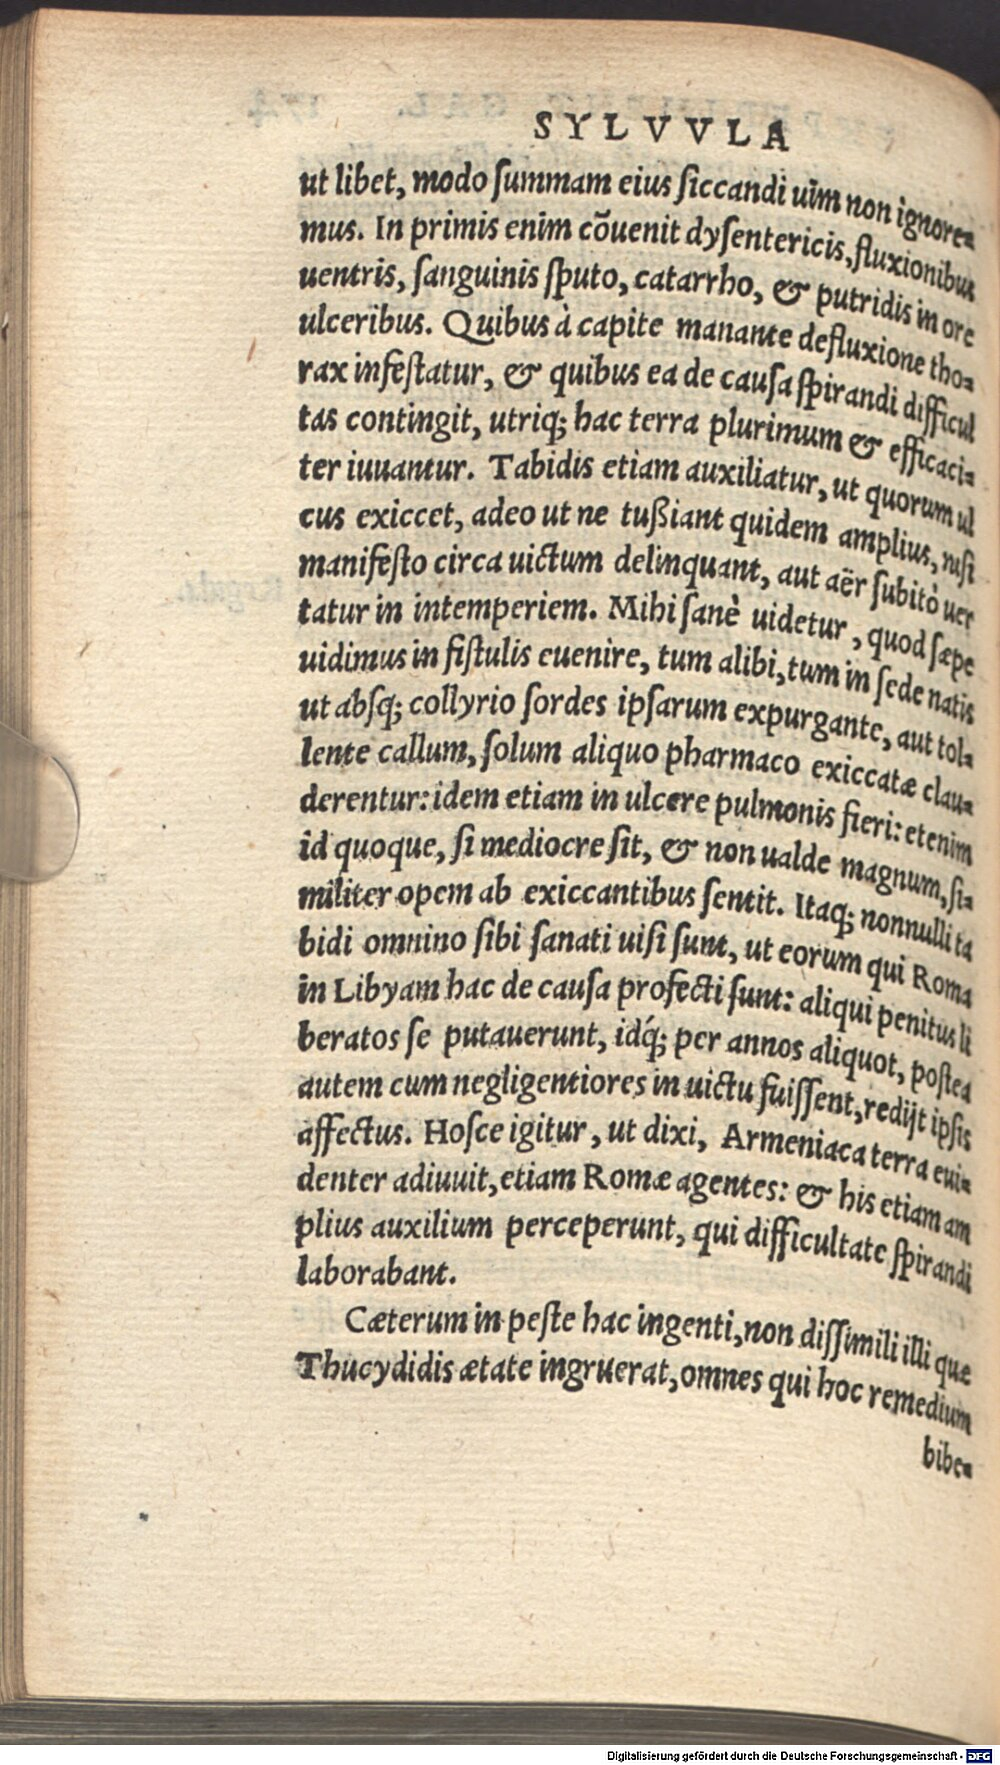 SYLVVLA
ut libet, modo ſummam eius ſiccandi uim non ignore-
mus. In primis enim cõuenit dyſentericis, fluxionibus
uentris, ſanguinis ſputo, catarrho, & putridis in ore
ulceribus. Quibus à capite manante defluxione tho-
rax infeſtatur, & quibus ea de cauſa ſpirandi difficul
tas contingit, utriq; hac terra plurimum & efficaci-
ter iuuantur. Tabidis etiam auxiliatur, ut quorum ul
cus exiccet, adeo ut ne tußiant quidem amplius, niſi
manifeſto circa uictum delinquant, aut aër ſubitò uer
tatur in intemperiem. Mihi ſanè uidetur, quod ſæpe
uidimus in fiſtulis euenire, tum alibi, tum in ſede natis
ut abſq; collyrio ſordes ipſarum expurgante, aut tol-
lente callum, ſolum aliquo pharmaco exiccatæ clau-
derentur: idem etiam in ulcere pulmonis fieri: etenim
id quoque, ſi mediocre ſit, & non ualde magnum, ſi-
militer opem ab exiccantibus ſentit. Itaq; nonnulli ta
bidi omnino ſibi ſanati uiſi ſunt, ut eorum qui Roma
in Libyam hac de cauſa profecti ſunt: aliqui penitus li
beratos ſe putauerunt, idq́; per annos aliquot, poſtea
autem cum negligentiores in uictu fuiſſent, redijt ipſis
affectus. Hoſce igitur, ut dixi, Armeniaca terra eui-
denter adiuuit, etiam Romæ agentes: & his etiam am
plius auxilium perceperunt, qui difficultate ſpirandi
laborabant.
Cæterum in peſte hac ingenti, non diſſimili illi quæ
Thucydidis ætate ingruerat, omnes qui hoc remedium
bibe-
Digitalisierung gefördert durch die Deutsche Forschungsgemeinschaft - DFG